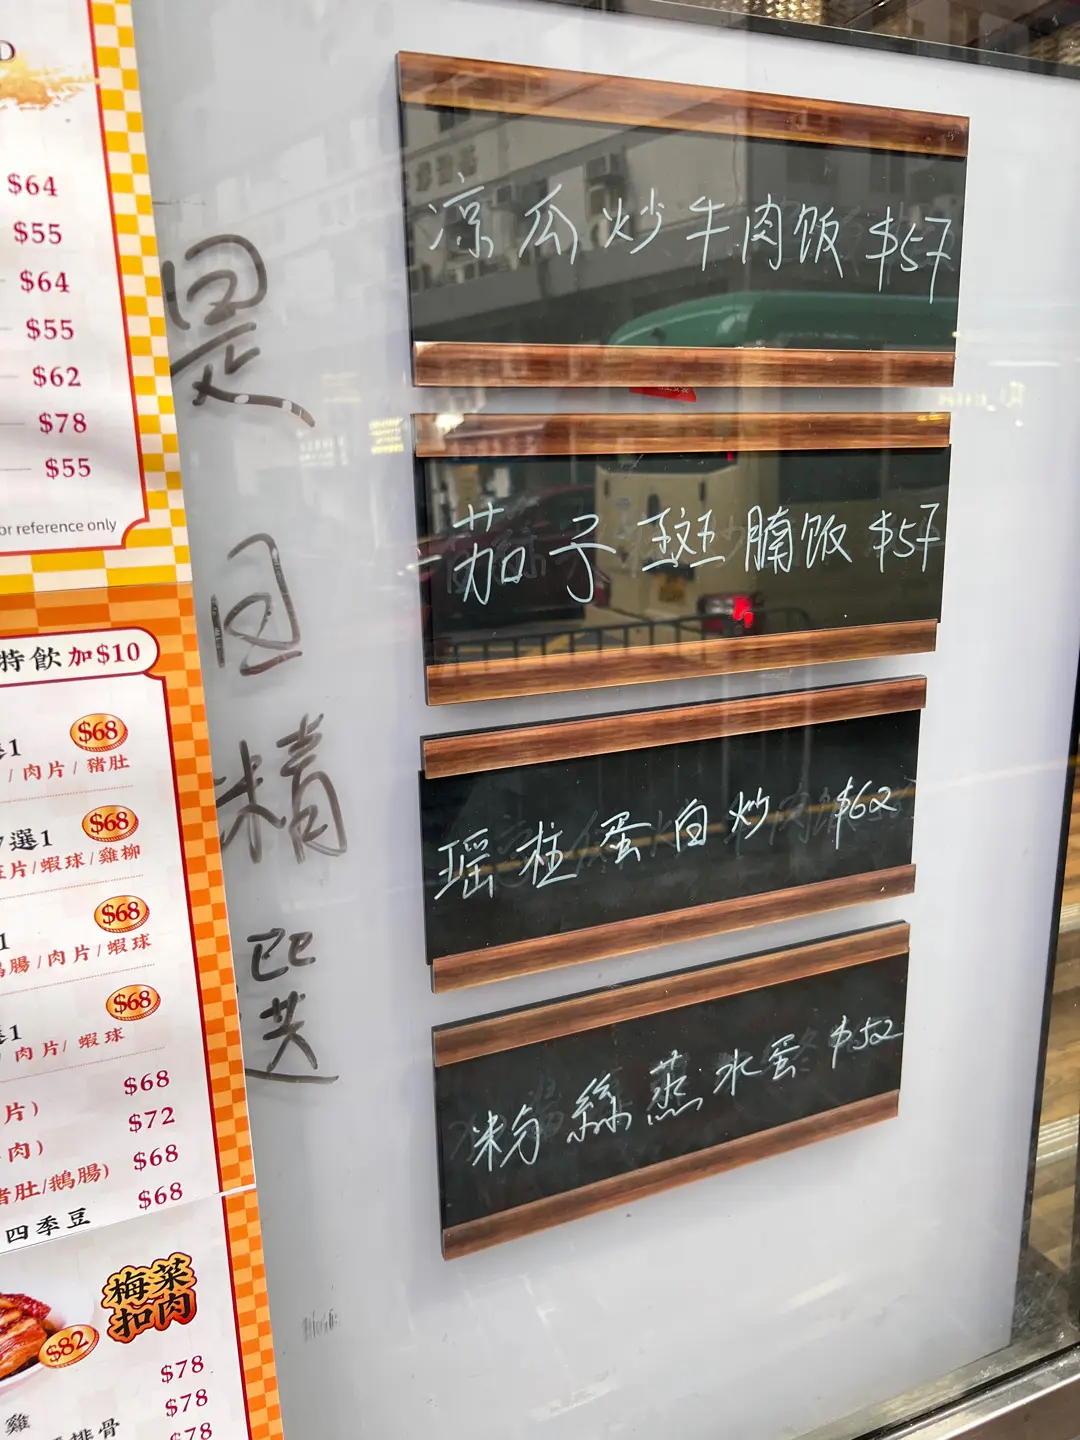 D
$64
$55
$64
$55
$62
$78
$55
or reference only
特飲加$10
$68
1
/肉片/豬肚
選1
$68
片/蝦球/雞柳
$68
1
腸/肉片/蝦球
$68
1
肉片/蝦球
$68
片)
$72
肉)
$68
豬肚/鵝腸)
$68
四季豆
梅菜
扣肉
$82
$78
$78
雞
排骨
$78
是日精選
凉瓜炒牛肉饭 $57
茄子斑腩饭 $57
瑶柱蛋白炒 $62
粉絲蒸水蛋 $52